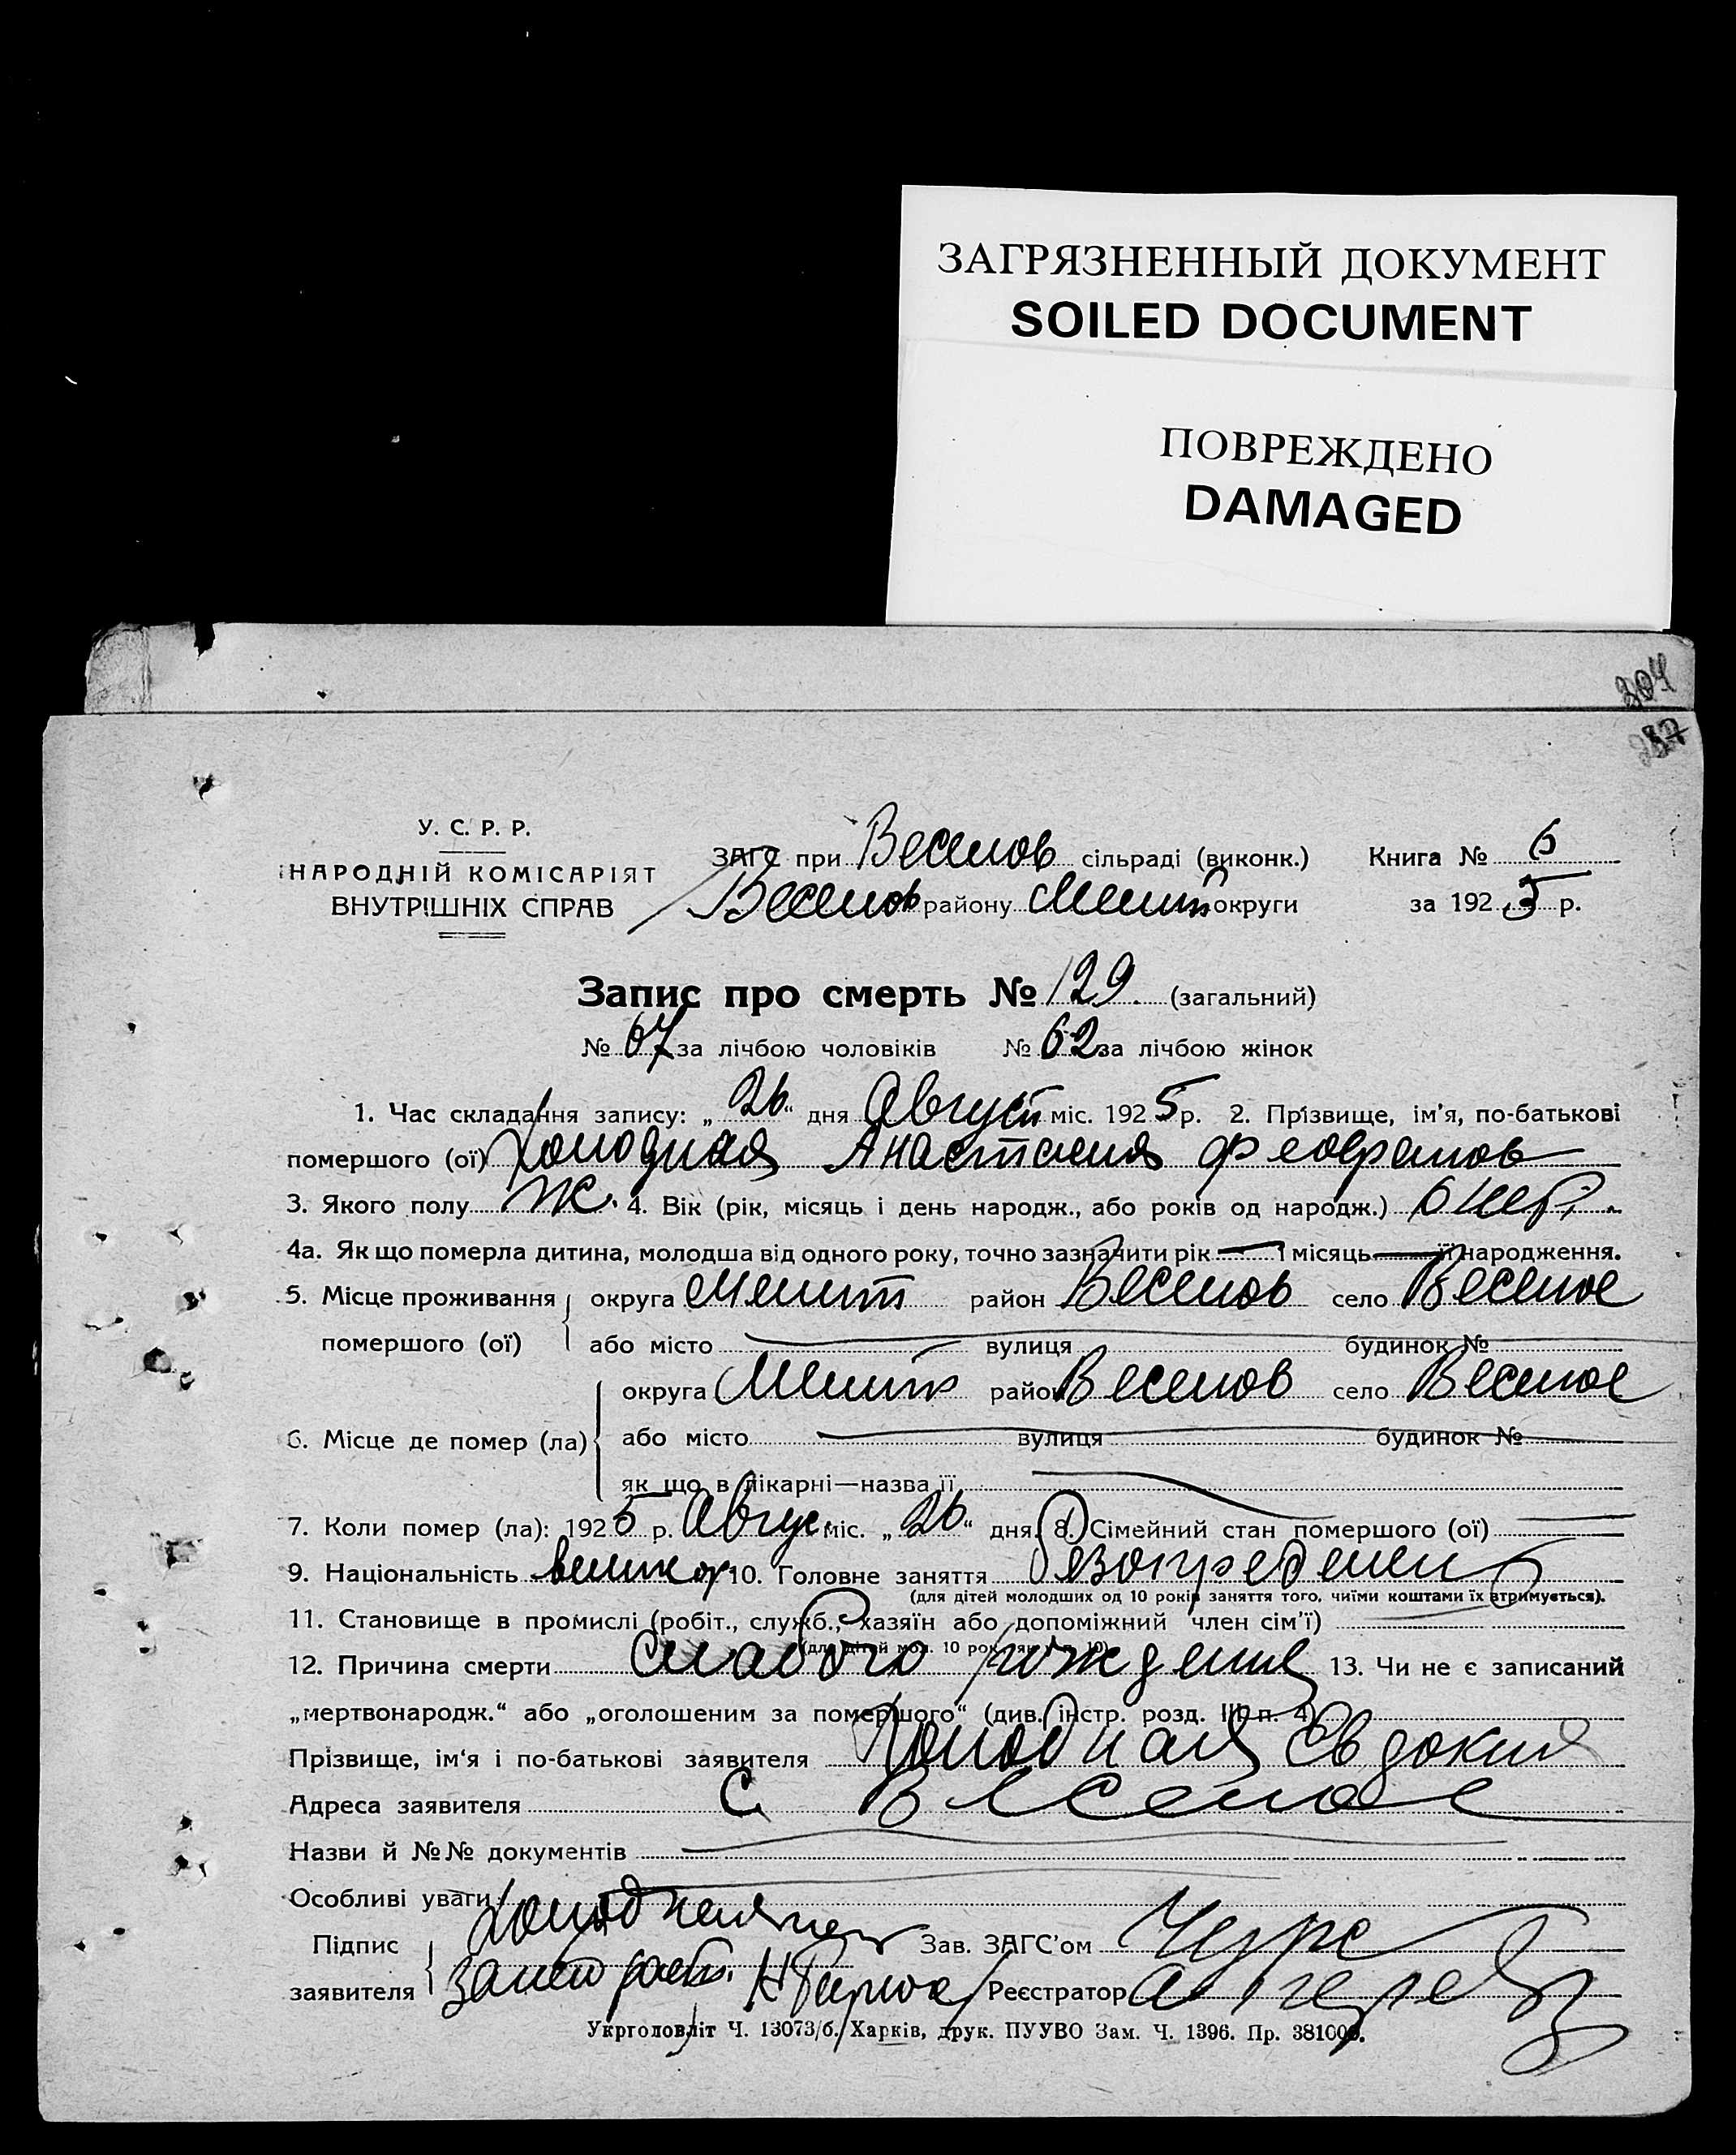 ЗАГРЯЗНЕННЫЙ ДОКУМЕНТ
SOILED DOCUMENT
ПОВРЕЖДЕНО
DAMAGED
304
287
У. С. Р. Р.
НАРОДНІЙ КОМІСАРІЯТ
ВНУТРІШНІХ СПРАВ
ЗАГС при Веселов сільраді (виконк.) Книга № 6
Веселов району Мелит округи за 1925 р.
Запис про смерть № 129 (загальний)
№ 67 за лічбою чоловіків № 62 за лічбою жінок
1. Час складання запису: „26“ дня Август міс. 1925 р. 2. Прізвище, ім'я, по-батькові
помершого (ої) Холодная Анастасия
3. Якого полу Ж. 4. Вік (рік, місяць і день народж., або років од народж.) 6
4а. Як що померла дитина, молодша від одного року, точно зазначити рік — і місяць — її народження.
5. Місце проживання округа Мелит район Веселов село Веселое
помершого (ої) або місто вулиця будинок №
округа Мелит район Веселов село Веселое
6. Місце де помер (ла) або місто вулиця будинок №
як що в лікарні—назва її
7. Коли помер (ла): 1925 р. Авгус. міс. „26“ дня. 8. Сімейний стан помершого (ої) —
9. Національність великор 10. Головне заняття безопределен
(для дітей молодших од 10 років заняття того, чиїми коштами їх втримується).
11. Становище в промислі (робіт., служб., хазяїн або допоміжний член сім'ї)
(для дітей мол. 10 рок. як у п. 10)
12. Причина смерти слабого рождения 13. Чи не є записаний
„мертвонародж.“ або „оголошеним за помершого“ (див. інстр. розд. III п. 4)
Прізвище, ім'я і по-батькові заявителя Холодная Евдокия
Адреса заявителя С. Веселое
Назви й №№ документів
Особливі уваги
Холодная
Підпис Зав. ЗАГС'ом
заявителя Реєстратор
Укрголовліт Ч. 13073/б. Харків, друк. ПУУВО Зам. Ч. 1396. Пр. 381000.